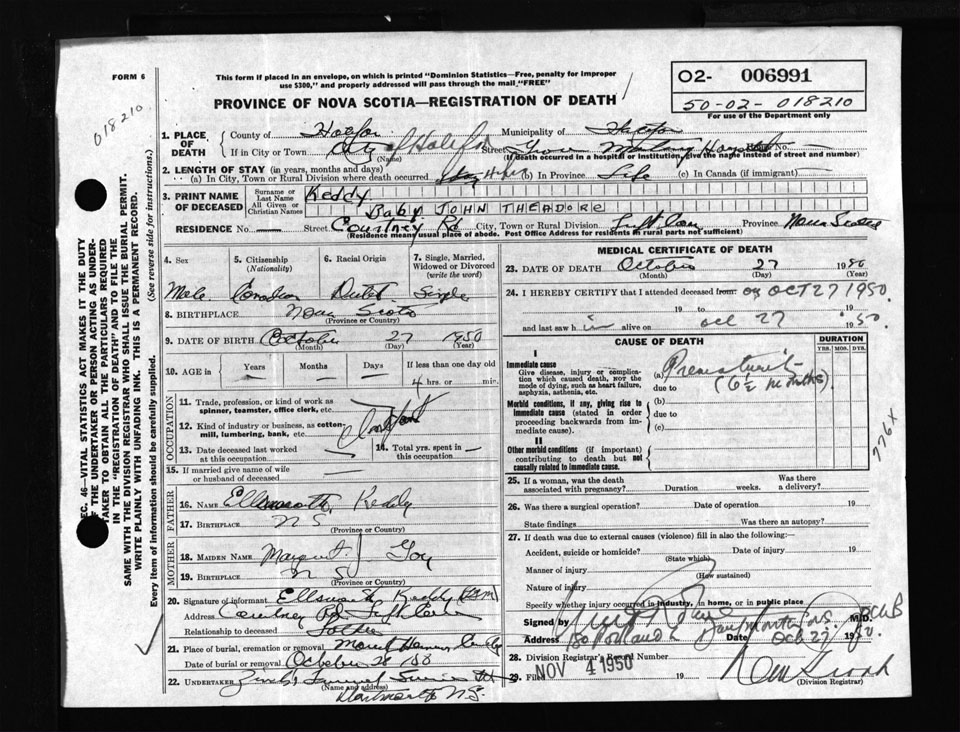 FORM 6
This form if placed in an envelope, on which is printed "Dominion Statistics—Free, penalty for improper
use $300," and properly addressed will pass through the mail "FREE"
02- 006991
50-02-018210
For use of the Department only
PROVINCE OF NOVA SCOTIA—REGISTRATION OF DEATH
018210
SEC. 46—VITAL STATISTICS ACT MAKES IT THE DUTY
OF THE UNDERTAKER OR PERSON ACTING AS UNDER-
TAKER TO OBTAIN ALL THE PARTICULARS REQUIRED
IN THE "REGISTRATION OF DEATH" AND TO FILE THE
SAME WITH THE DIVISION REGISTRAR WHO SHALL ISSUE THE BURIAL PERMIT.
WRITE PLAINLY WITH UNFADING INK. THIS IS A PERMANENT RECORD.
Every item of information should be carefully supplied. (See reverse side for instructions.)
1. PLACE OF DEATH County of Halifax Municipality of Halifax
If in City or Town City of Halifax (Name) Street Grace Maternity Hospital No.
(If death occurred in a hospital or institution, give the name instead of street and number)
2. LENGTH OF STAY (in years, months and days)
(a) In City, Town or Rural Division where death occurred (b) In Province Life (c) In Canada (if immigrant)
3. PRINT NAME OF DECEASED Surname or Last Name Keddy
All Given or Christian Names Baby JOHN THEADORE
RESIDENCE No. — Street Courtney Rd City, Town or Rural Division Province Nova Scotia
(Residence means usual place of abode. Post Office Address for residents in rural parts not sufficient)
4. Sex 5. Citizenship (Nationality) 6. Racial Origin 7. Single, Married, Widowed or Divorced (write the word)
Male Canadian Dutch Single
8. BIRTHPLACE Nova Scotia
(Province or Country)
9. DATE OF BIRTH October 27 1950
(Month) (Day) (Year)
10. AGE in Years Months Days If less than one day old
4 hrs. or min.
OCCUPATION
11. Trade, profession, or kind of work as
spinner, teamster, office clerk, etc.
12. Kind of industry or business, as cotton-
mill, lumbering, bank, etc. Infant
13. Date deceased last worked at this occupation
14. Total yrs. spent in this occupation
15. If married give name of wife
or husband of deceased
FATHER
16. NAME Ellsworth Keddy
17. BIRTHPLACE N S
(Province or Country)
MOTHER
18. MAIDEN NAME Margaret J
19. BIRTHPLACE N S
(Province or Country)
20. Signature of informant Ellsworth Keddy
Address Courtney Rd
Relationship to deceased Father
21. Place of burial, cremation or removal Mount Hermon
Date of burial or removal October 28 '50
22. UNDERTAKER Funeral Service
(Name and address)
Dartmouth N.S.
MEDICAL CERTIFICATE OF DEATH
23. DATE OF DEATH October 27 1950
(Month) (Day) (Year)
24. I HEREBY CERTIFY that I attended deceased from: on OCT 27 1950.
19 to 19
and last saw him alive on oct 27 1950.
CAUSE OF DEATH DURATION
YRS. MOS. DYS.
I
Immediate cause
Give disease, injury or complica-
tion which caused death, NOT the
mode of dying, such as heart failure,
asphyxia, asthenia, etc.
(a) Prematurity
due to (6½ months)
Morbid conditions, if any, giving rise to
immediate cause (stated in order
proceeding backwards from im-
mediate cause).
(b)
due to
(c)
II
Other morbid conditions (if important)
contributing to death but not
causally related to immediate cause.
776X
25. If a woman, was the death associated with pregnancy? Duration weeks. Was there a delivery?
26. Was there a surgical operation? Date of operation 19
State findings Was there an autopsy?
27. If death was due to external causes (violence) fill in also the following:
Accident, suicide or homicide? Date of injury 19
(State which)
Manner of injury
(How sustained)
Nature of injury
Specify whether injury occurred in industry, in home, or in public place
Signed by M.D.
Address Portland Dartmouth N.S. Date Oct. 27 1950.
28. Division Registrar's Record Number
29. Filed NOV 4 1950 19
(Division Registrar)